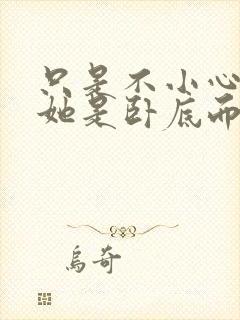 只是不小心
她是卧底而
乌奇